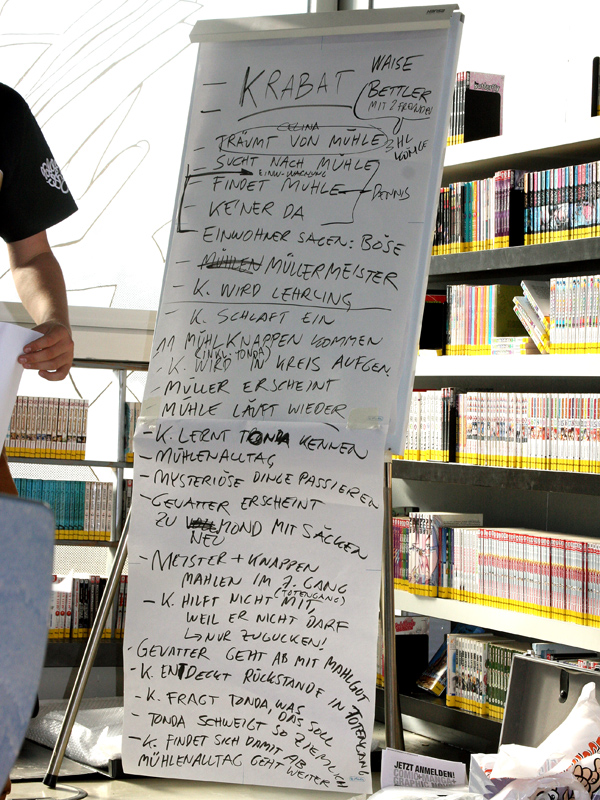 KRABAT
WAISE
BETTLER
MIT 2 FREUNDEN
3 HL
KÖNIGE
TRÄUMT VON MÜHLE
SUCHT NACH MÜHLE
EINW.-WARNUNG
FINDET MÜHLE
DENNIS
KEINER DA
EINWOHNER SAGEN: BÖSE
MÜHLEN MÜLLERMEISTER
- K. WIRD LEHRLING
- K. SCHLÄFT EIN
11 MÜHLKNAPPEN KOMMEN
(INKL. TONDA)
- K. WIRD IN KREIS AUFGEN.
- MÜLLER ERSCHEINT
MÜHLE LÄUFT WIEDER
- K. LERNT TONDA KENNEN
- MÜHLENALLTAG
- MYSTERIÖSE DINGE PASSIEREN
- GEVATTER ERSCHEINT
ZU NEUMOND MIT SÄCKEN
- MEISTER + KNAPPEN
MAHLEN IM 7. GANG
(TOTENGANG)
- K. HILFT NICHT MIT,
WEIL ER NICHT DARF
NUR ZUGUCKEN!
- GEVATTER GEHT AB MIT MAHLGUT
- K. ENTDECKT RÜCKSTÄNDE IN TOTENGANG
- K. FRAGT TONDA, WAS DAS SOLL
- TONDA SCHWEIGT SO ZIEMLICH
- K. FINDET SICH DAMIT AB
MÜHLENALLTAG GEHT WEITER
JETZT ANMELDEN!